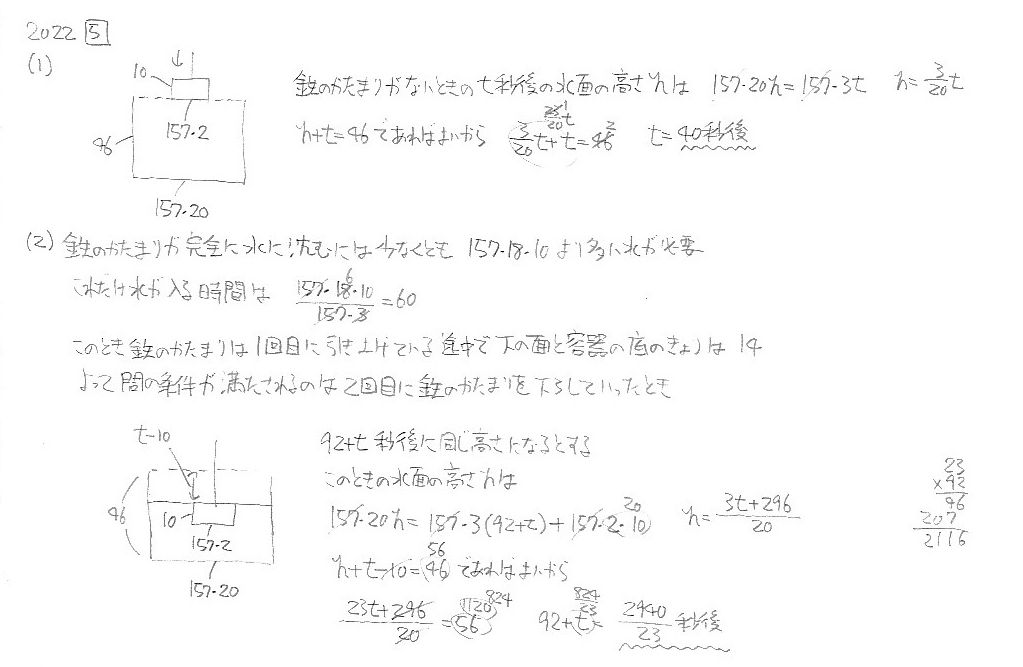 2022 5
(1)
10
157・2
46
157・20
鉄のかたまりがないときの t 秒後の水面の高さ h は 157・20h = 157・3t h = 3/20 t
h+t=46 であればよいから 3/20 t + t = 46 t = 40秒後
23/20 t
1
2
(2) 鉄のかたまりが完全に水に沈むには少なくとも 157・18・10 より多い水が必要
これだけ水が入る時間は 157・18・10 / 157・3 = 60
6
このとき鉄のかたまりは1回目に引き上げている途中で下の面と容器の底のきょりは 14
よって問の条件が満たされるのは2回目に鉄のかたまりを下ろしていったとき
t-10
46
10
157・2
157・20
92+t 秒後に同じ高さになるとする
このときの水面の高さ h は
157・20h = 157・3(92+t) + 157・2・10 h = 3t+296 / 20
20
h+t-10=46 であればよいから
56
23t+296 / 20 = 56 92+t = 2940/23 秒後
1120
824
824/23
23
×92
46
207
2116